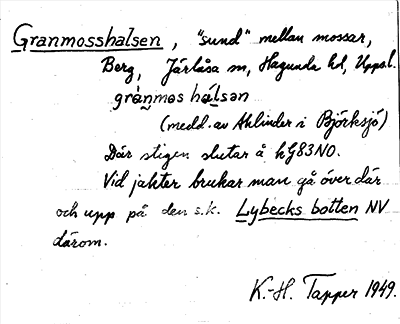 Granmosshalsen, "sund" mellan mossar,
Berg, Järlåsa sn, Hagunda hd, Uppsl.
grànmos hálsən
(medd. av Ahlinder i Björksjö)
Där stigen slutar å kG83NO.
Vid jakter brukar man gå över där
och upp på den s.k. Lybecks botten NV
därom.
K.-H. Tapper 1949.